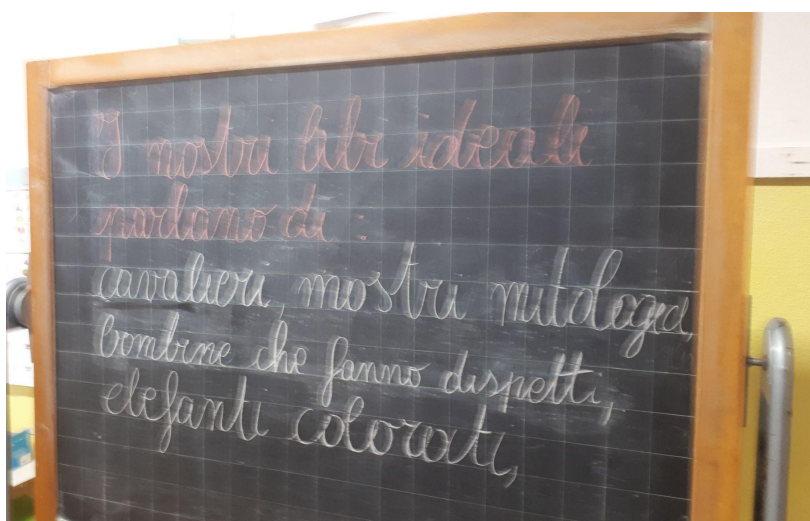 I nostri libri ideali
parlano di:
cavalieri, mostri mitologici,
bambine che fanno dispetti,
elefanti colorati,